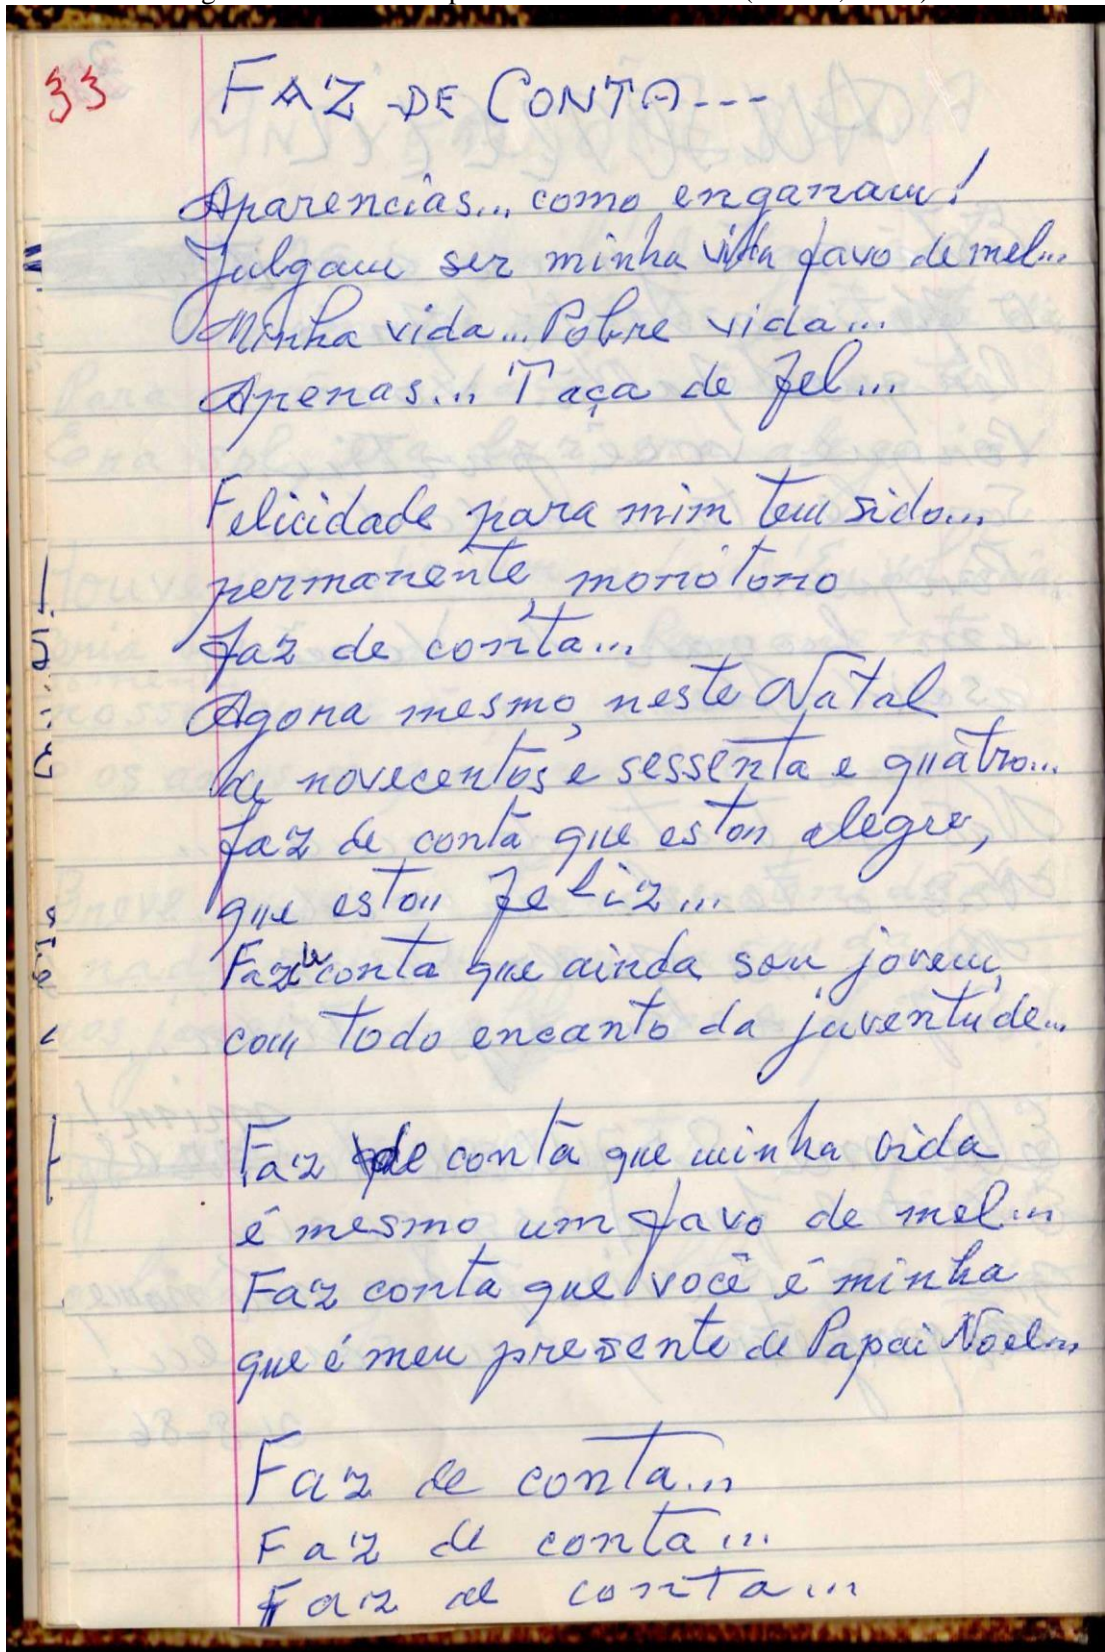 33
FAZ DE CONTA---
Aparencias... como enganam!
Julgam ser minha vida favo de mel...
Minha vida... Pobre vida...
Apenas... Taça de fel...
Felicidade para mim tem sido...
permanente, monótono
faz de conta...
Agora mesmo, neste Natal
de novecentos e sessenta e quatro...
faz de conta que estou alegre,
que estou feliz...
Faz de conta que ainda sou jovem,
com todo encanto da juventude...
Faz de conta que minha vida
é mesmo um favo de mel...
Faz conta que você é minha
que é meu presente de Papai Noel...
Faz de conta...
Faz de conta...
Faz de conta...